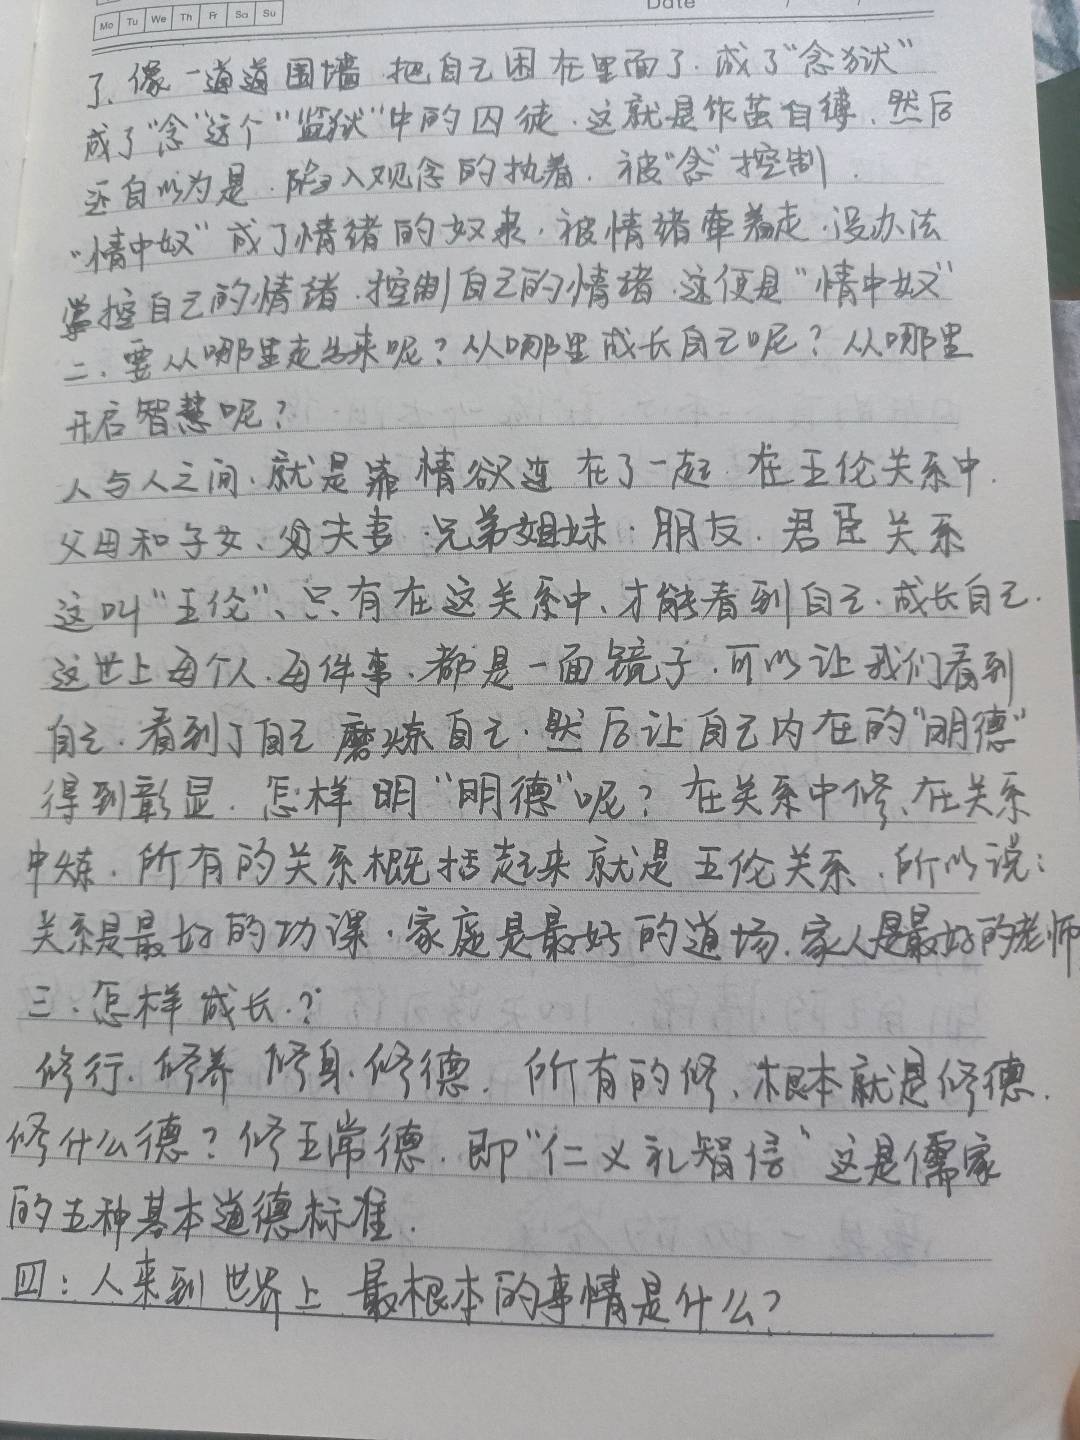 Mo Tu We Th Fr Sa Su
Date / /
了、像一道道围墙 把自己困在里面了.成了“念狱”
成了“念”这个“监狱”中的囚徒.这就是作茧自缚、然后
还自以为是.陷入观念的执着.被“念”控制.
“情中奴”成了情绪的奴隶.被情绪牵着走.没办法
掌控自己的情绪.控制自己的情绪.这便是“情中奴”
二、要从哪里走出来呢?从哪里成长自己呢?从哪里
开启智慧呢?
人与人之间.就是靠情欲连在了一起.在五伦关系中.
父母和子女、夫妻.兄弟姐妹.朋友.君臣关系
这叫“五伦”、只有在这关系中、才能看到自己.成长自己.
这世上每个人.每件事.都是一面镜子.可以让我们看到
自己.看到了自己 磨炼自己.然后让自己内在的“明德”
得到彰显.怎样明“明德”呢?在关系中修、在关系
中炼.所有的关系概括起来就是五伦关系.所以说:
关系是最好的功课.家庭是最好的道场.家人是最好的老师
三.怎样成长.?
修行.修养 修身.修德.所有的修、根本就是修德.
修什么德?修五常德.即“仁义礼智信”这是儒家
的五种基本道德标准.
四:人来到世界上 最根本的事情是什么?